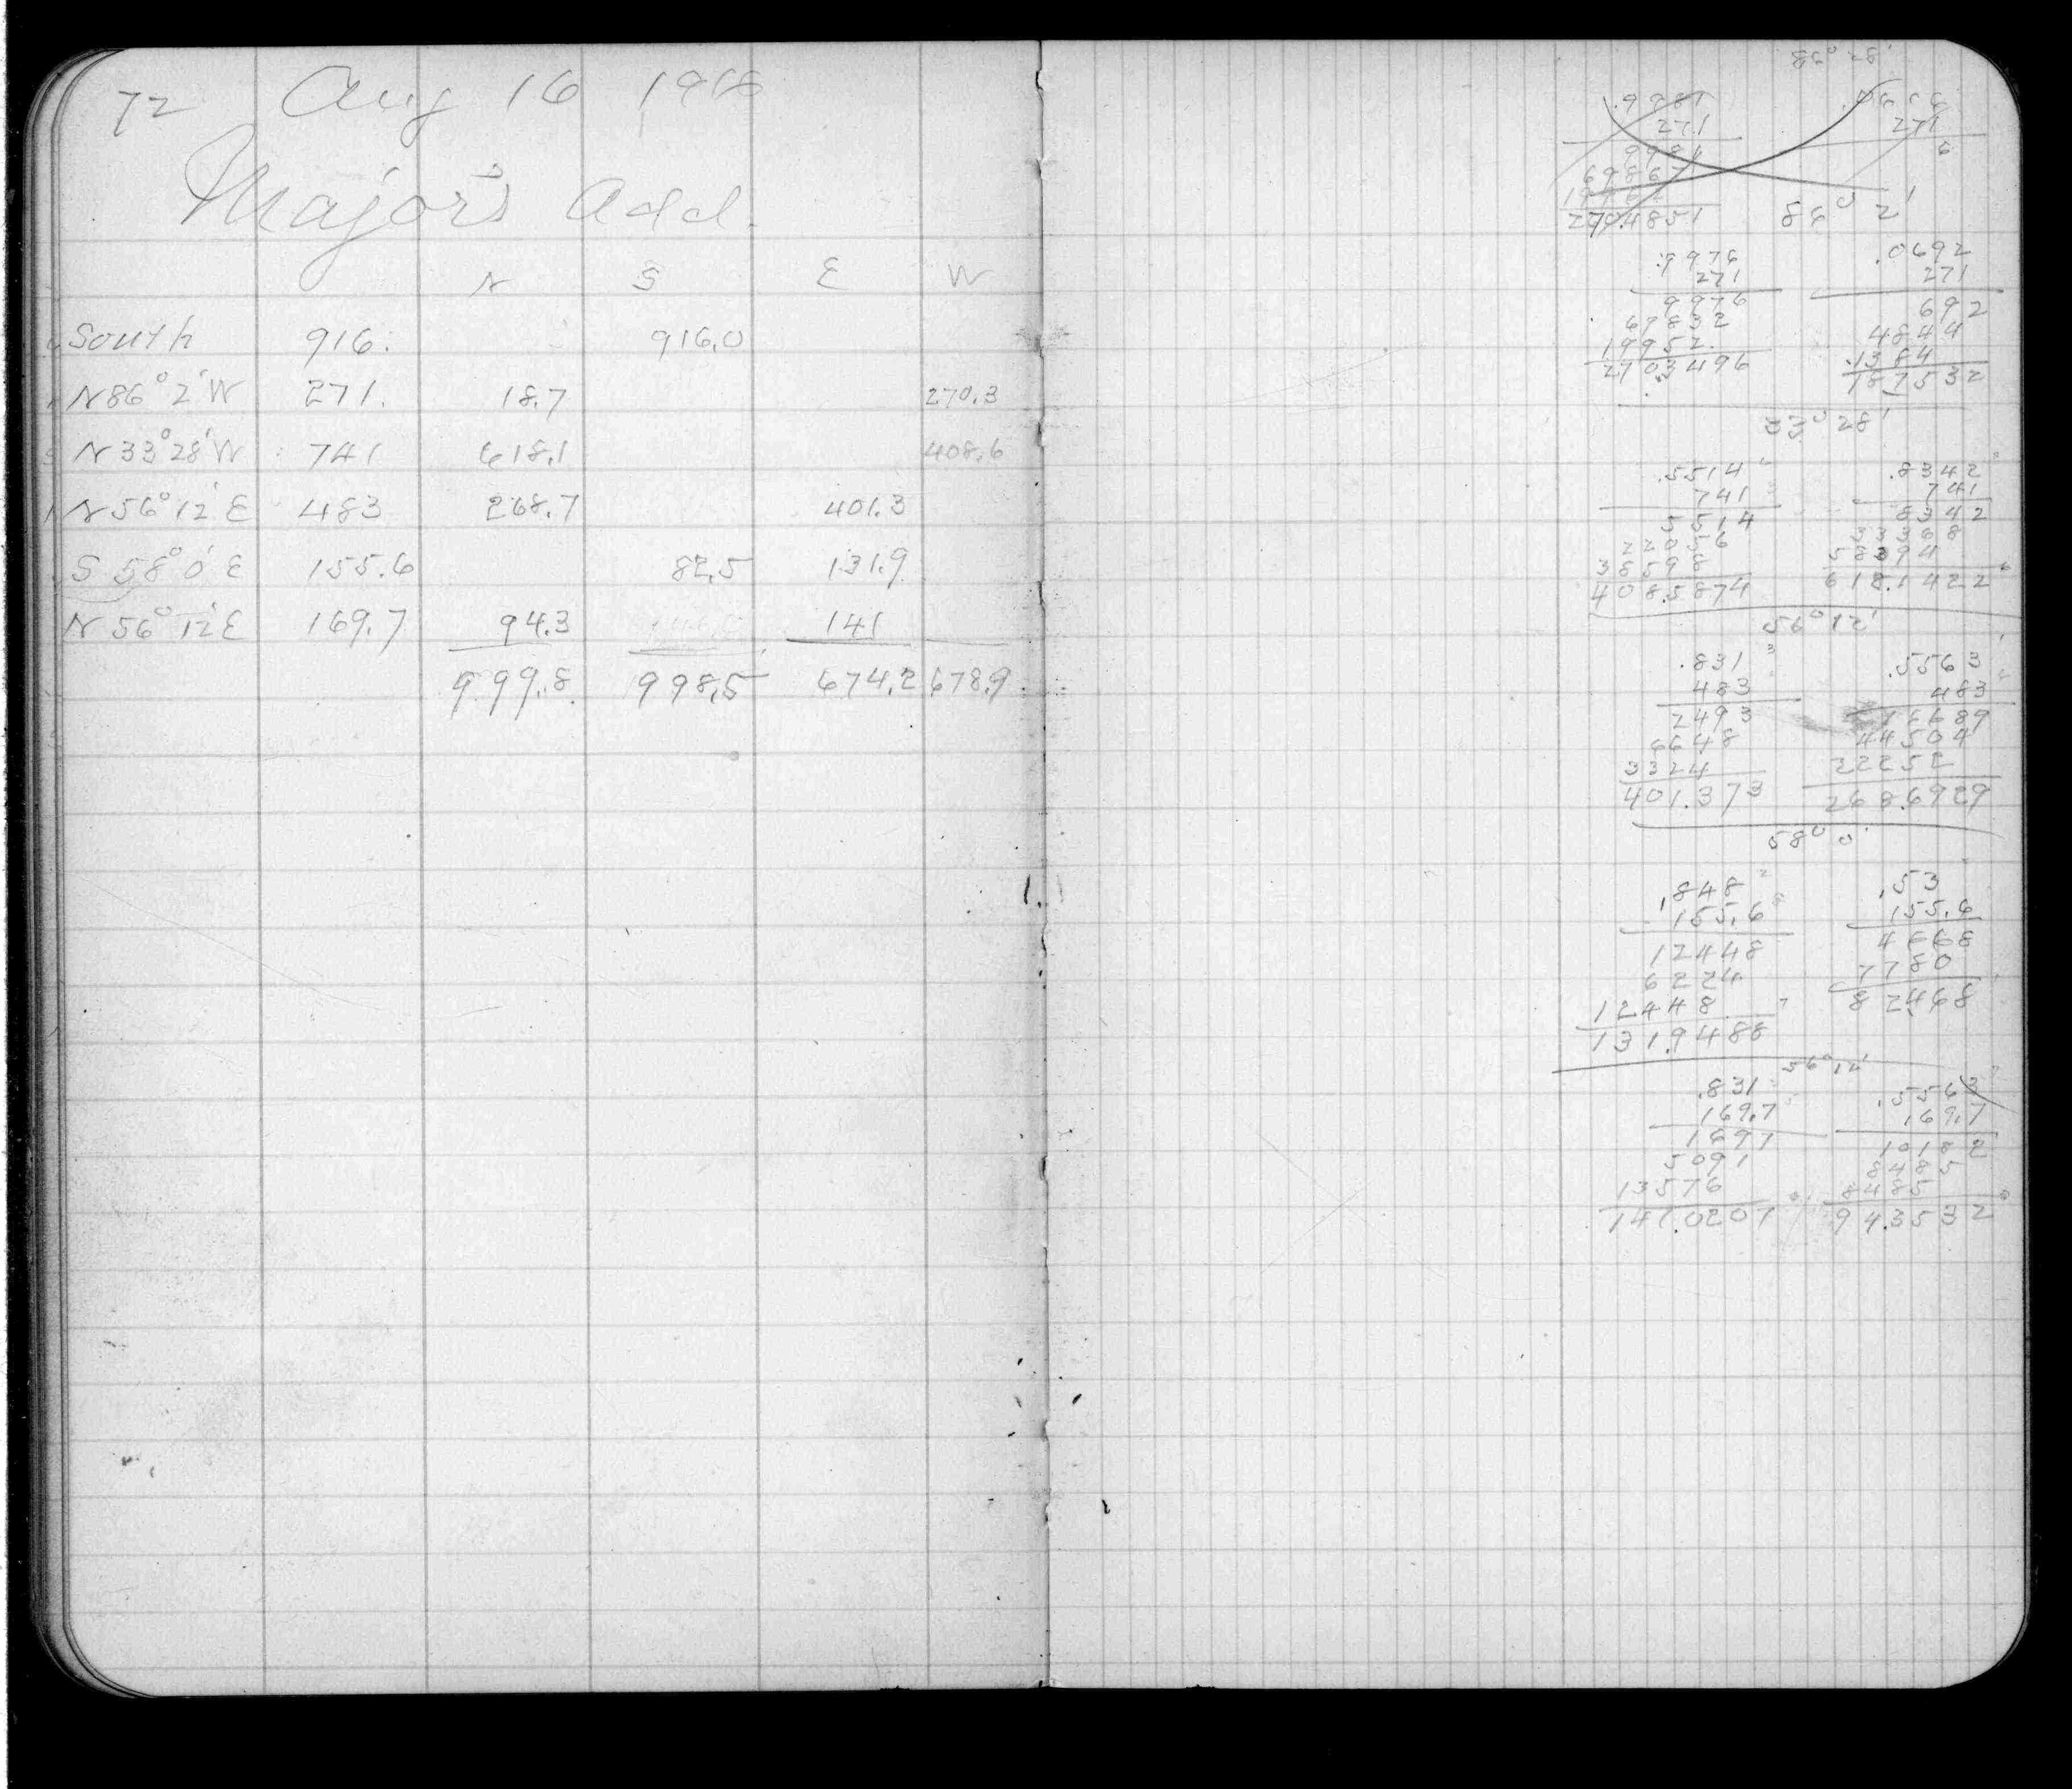 72 Aug 16 1918
Major's Add.
N S E W
South 916. 916.0
N86°2'W 271. 18.7 270.3
N33°28'W 741 618.1 408.6
N56°12'E 483 268.7 401.3
S 58°0'E 155.6 82.5 131.9
N 56°12'E 169.7 94.3 141
999.8 998.5 674.2 678.9
.9981
271 271
9981
69867
270.4851
86° 2'
.9976 .0692
271 271
9976 692
69832 4844
19952 1384
2703496 187532
33° 28'
.5514 .8342
741 741
5514 8342
22056 33368
38598 58394
408.5874 618.1422
56° 12'
.831 .5563
483 483
2493 16689
6648 44504
3324 22252
401.373 268.6929
58° 0'
.848 .53
155.6 155.6
12448 4668
6224 7780
12448 82.468
131.9488
56° 12'
.831 .5563
169.7 169.7
1697 10182
5091 8485
13576 8485
141.0207 94.3532